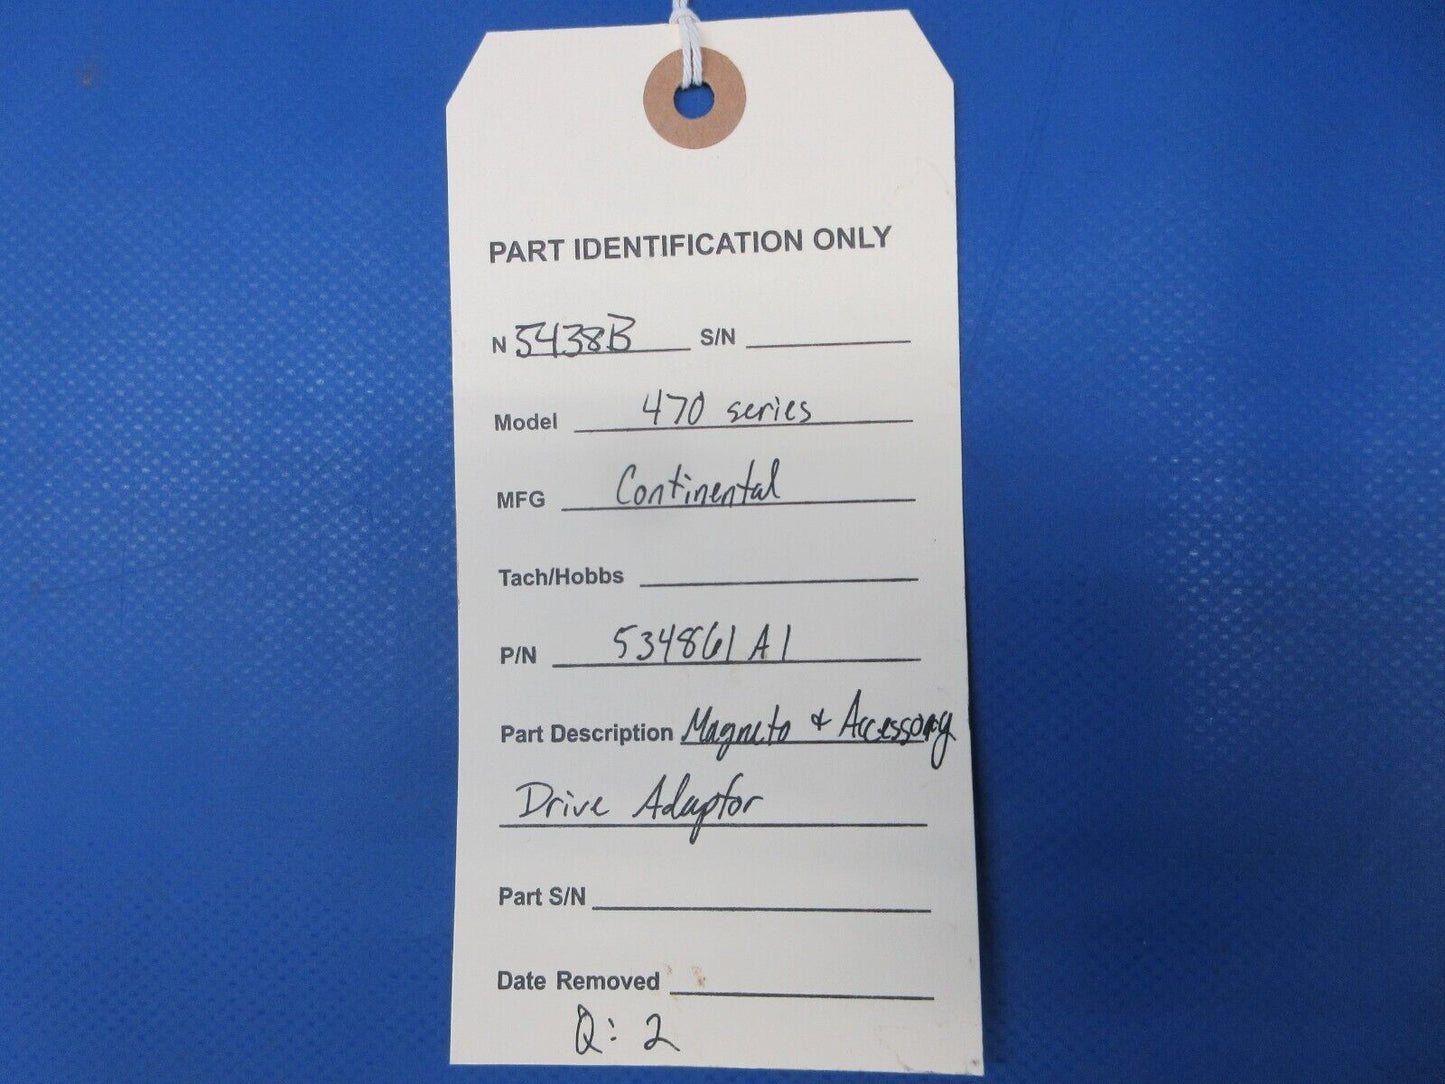 PART IDENTIFICATION ONLY
N 5438B S/N
Model 470 series
MFG Continental
Tach/Hobbs
P/N 534861 A1
Part Description Magneto + Accessory
Drive Adaptor
Part S/N
Date Removed
Q: 2